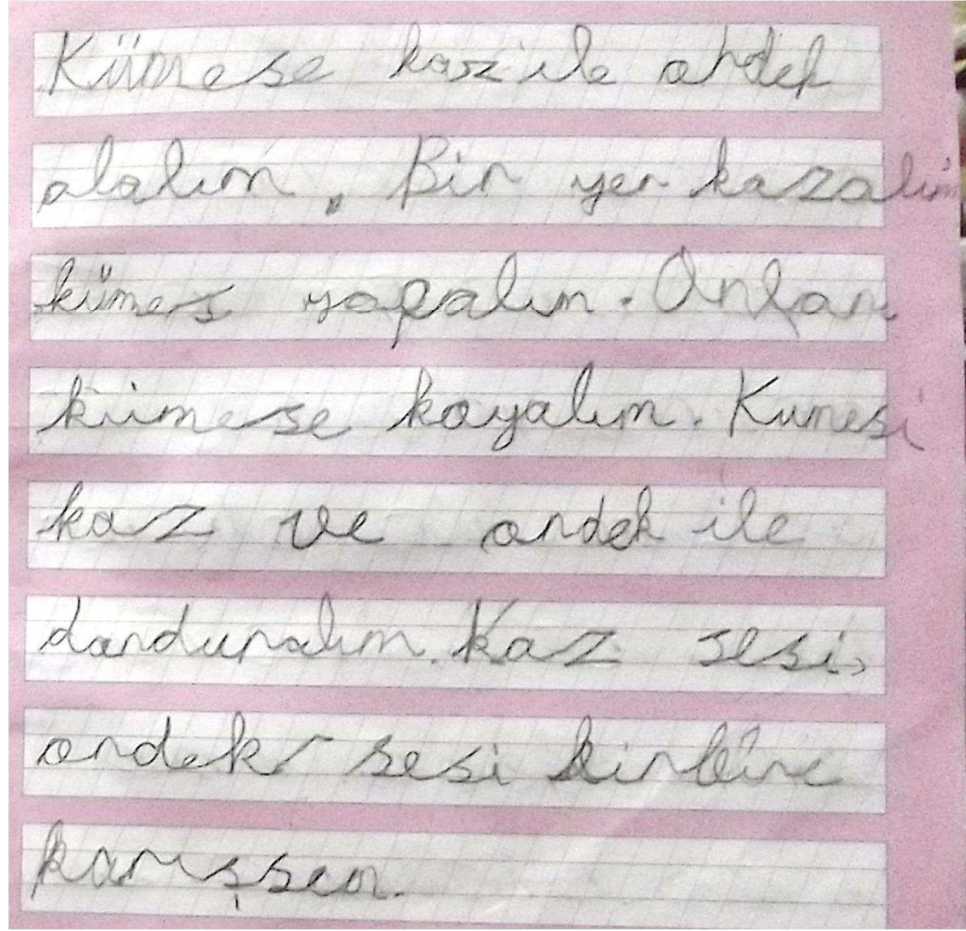 Kümese kaz ile ördek
alalım. Bir yer kazalım
kümes yapalım. Onları
kümese koyalım. Kumesi
kaz ve ordek ile
dorduralım. Kaz sesi,
ordek sesi birbirine